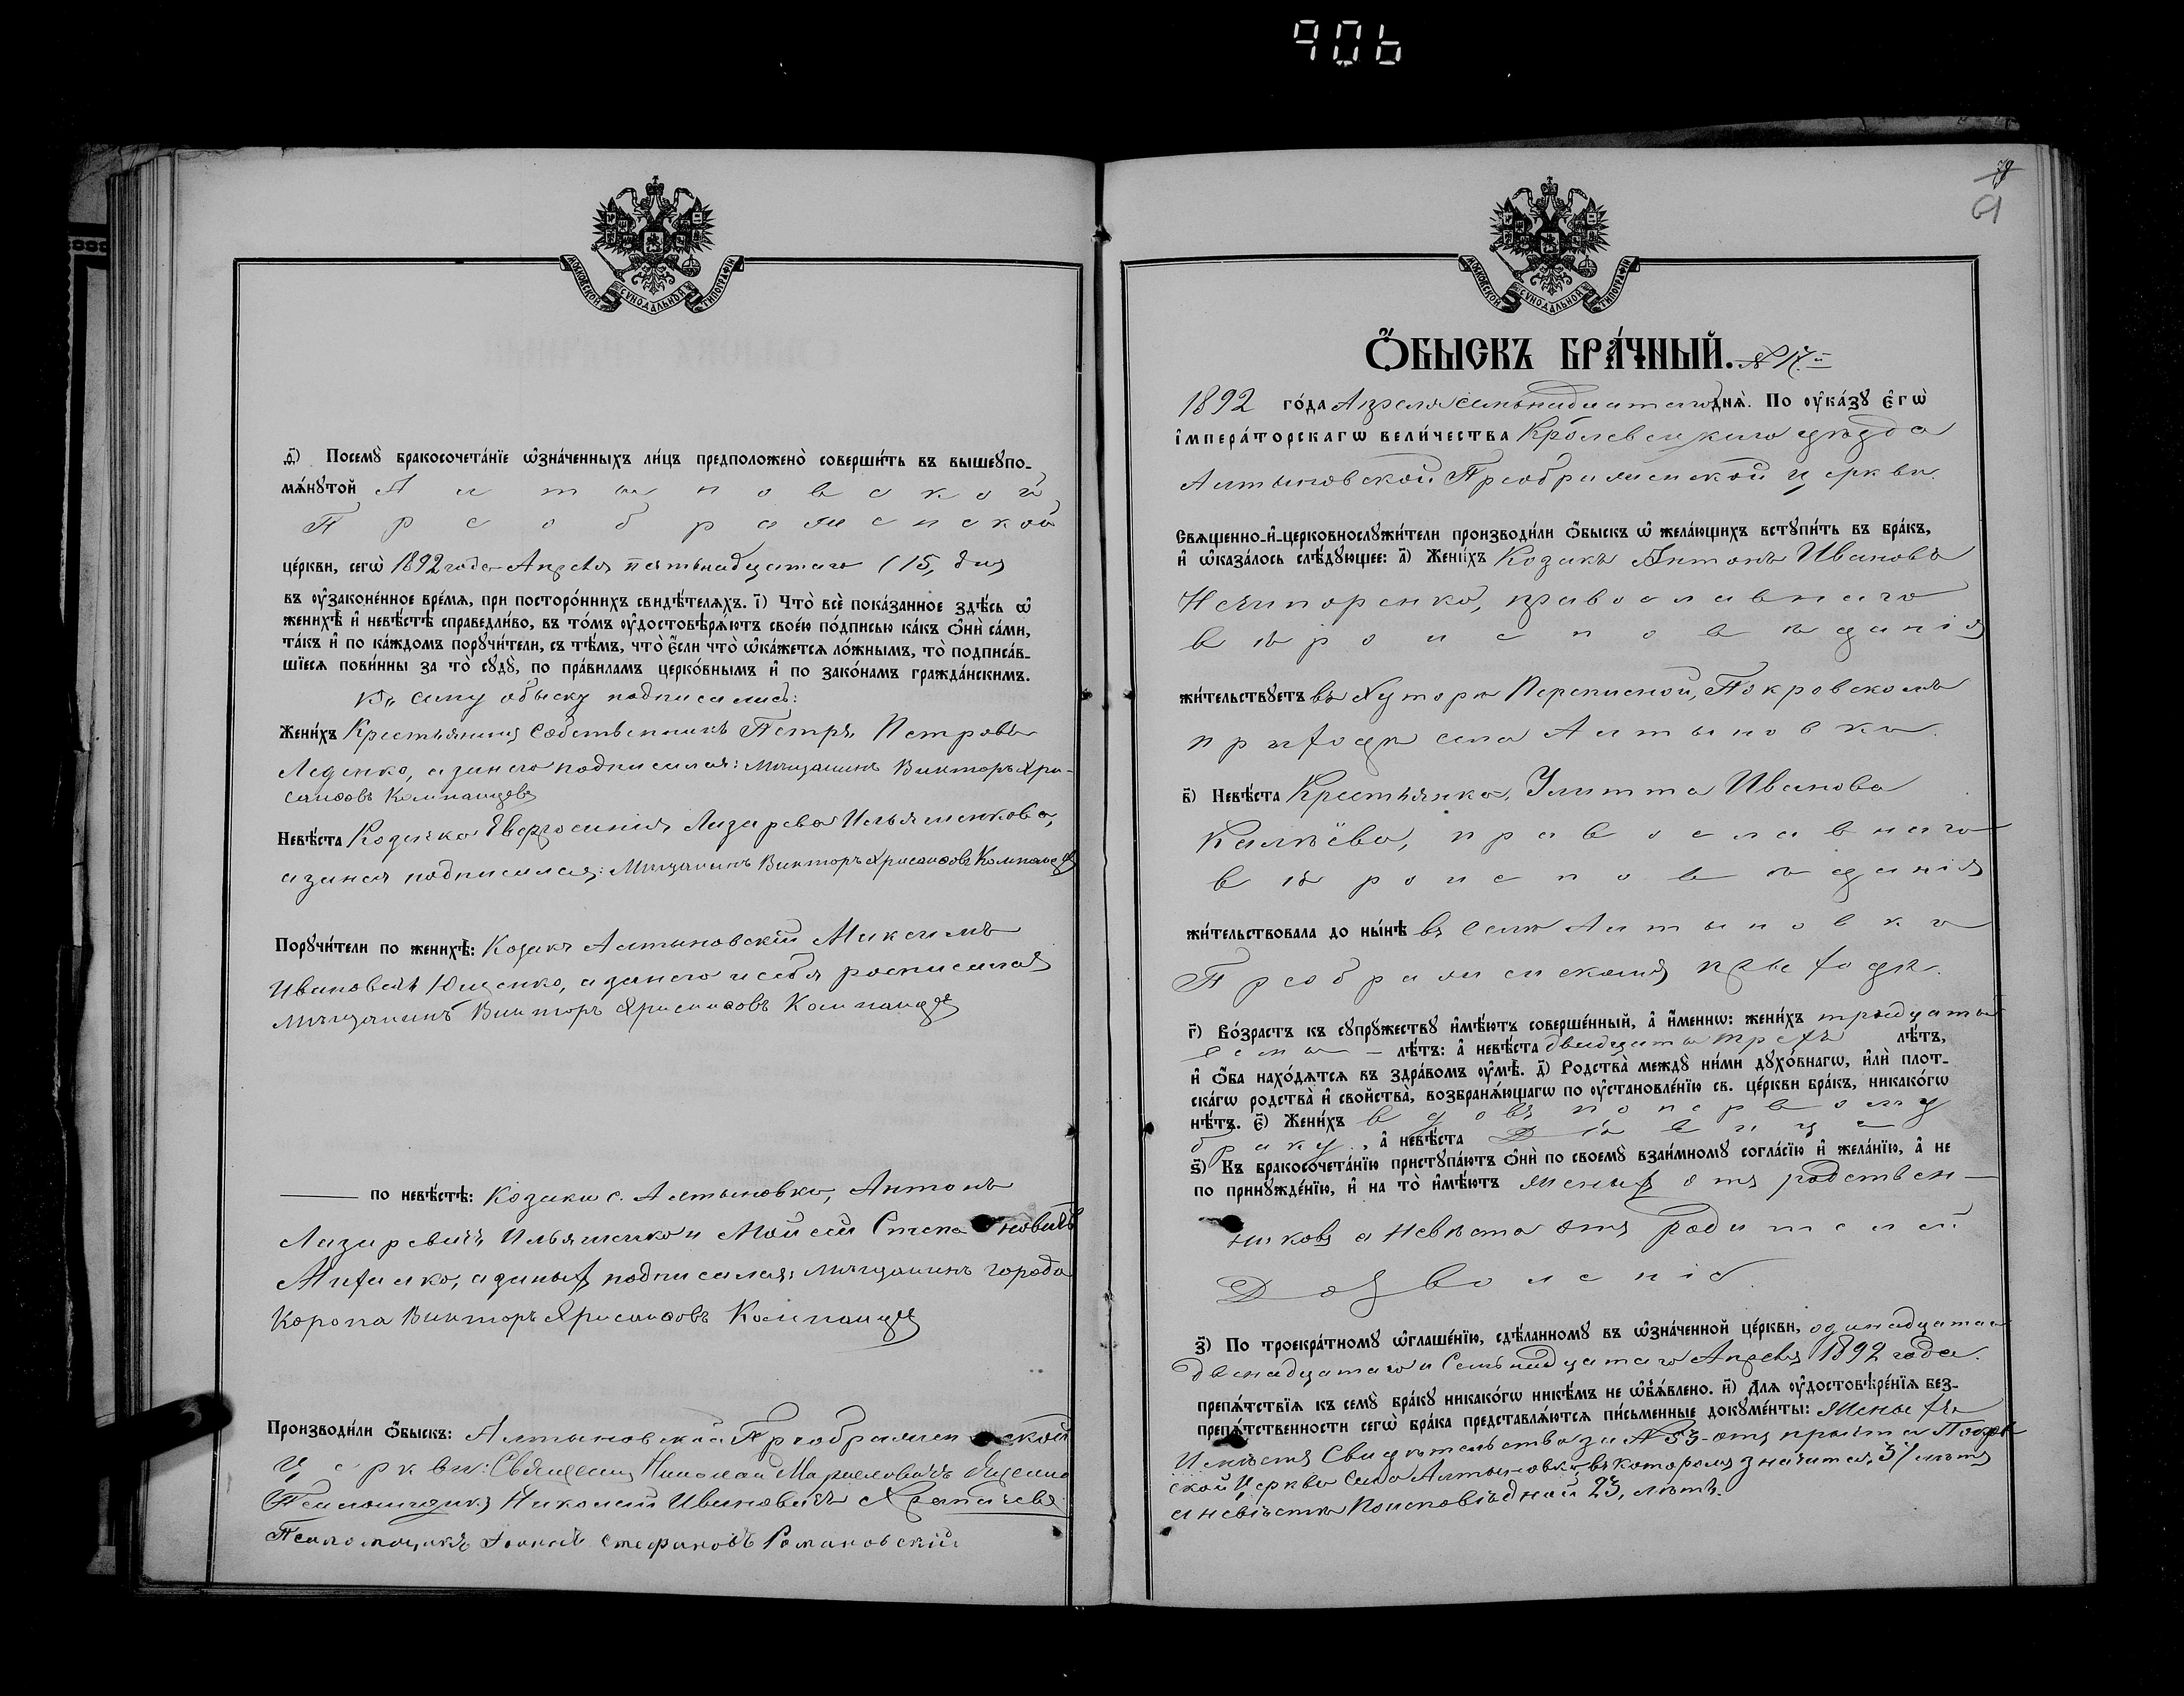 906
МОСКОВСКОЙ СѴНОДАЛЬНОЙ ТИПОГРАФІИ
д҃) Посемꙋ̀ бракосочета́нїе ѡ҆зна́ченныхъ ли́цъ предположено̀ соверши́ть въ вышеꙋпо-
мѧ́нꙋтой Алтыновской
Преображенской
це́ркви, сегѡ̀ 1892 года Апреля пятьнадцатаго (15, дня
въ ᲂу҆законе́нное вре́мѧ, при посторо́ннихъ свидѣ́телѧхъ. і҃) Что̀ всѐ пока́занное здѣ́сь ѡ҆
женихѣ̀ и҆ невѣ́стѣ справедли́во, въ то́мъ ᲂу҆достовѣрѧ́ютъ свое́ю по́дписью ка́къ ѻ҆нѝ са́ми,
та́къ и҆ по ка́ждомъ порꙋчи́тели, съ тѣ́мъ, что̀ є҆́сли что̀ ѡ҆ка́жетсѧ ло́жнымъ, то̀ подписа́в-
шїесѧ пови́нны за то̀ сꙋдꙋ̀, по пра́виламъ церко́внымъ и҆ по зако́намъ гражда́нскимъ.
Къ сему обыску подписались:
Жени́хъ Крестьянинъ Собственникъ Петръ Петровъ
Леденко, а за него подписался: Мѣщанинъ Викторъ Хри-
санфовъ Компанцевъ
Невѣ́ста Козачка Евфросинія Лазарева Ильяшенкова,
а за нея подписался: Мѣщанинъ Викторъ Хрисанфовъ Компанцевъ
Порꙋчи́тели по женихѣ̀: Козакъ Алтыновскій Максимъ
Ивановичъ Ющенко, а за него и себя росписался
Мѣщанинъ Викторъ Хрисанфовъ Компанцевъ
по невѣ́стѣ: Козаки с. Алтыновки, Антонъ
Лазаревичъ Ильяшенко и Моисей Степановичъ
а за ныхъ подписался: Мѣщанинъ города
Коропа Викторъ Хрисанфовъ Компанцевъ
Производи́ли ѻ҆́быскъ: Алтыновской Преображенской
Церкви: Священ. Николай
Псаломщикъ Николай Ивановичъ
Псаломщикъ Стефановъ Романовскій
61
МОСКОВСКОЙ СѴНОДАЛЬНОЙ ТИПОГРАФІИ
Ѻ҆́быскъ бра́чный. № 17.й
1892 го́да Апреля семьнадцатаго днѧ̀. По ᲂу҆ка́зꙋ є҆гѡ̀
і҆мпера́торскагѡ вели́чества Кролевецкаго уѣзда
Алтыновской Преображенской церкви.
Свѧще́нно-и҆-церковнослꙋжи́тели производи́ли ѻ҆́быскъ ѡ҆ жела́ющихъ встꙋпи́ть въ бра́къ,
и҆ ѡ҆каза́лось слѣ́дꙋющее: а҃) Жени́хъ Козакъ Антонъ Ивановъ
Нечипоренко, православнаго
вѣроисповѣданія
жи́тельствꙋетъ въ Хуторѣ Переписной, Покровскомъ
приходѣ села Алтыновки.
в҃) Невѣ́ста Крестьянка, Улитта Иванова
православнаго
вѣроисповѣданія
жи́тельствовала до ны́нѣ въ селѣ Алтыновкѣ
Преображенскомъ приходѣ.
г҃) Во́зрастъ къ сꙋпрꙋ́жествꙋ и҆мѣ́ютъ соверше́нный, а҆ и҆́менно: жени́хъ тридцать
семь лѣ́тъ: а҆ невѣ́ста двадцать трехъ лѣ́тъ,
и҆ ѻ҆́ба нахо́дѧтсѧ въ здра́вомъ ᲂу҆мѣ̀. д҃) Родства̀ междꙋ̀ ни́ми дꙋхо́внагѡ, и҆лѝ плот-
ска́гѡ родства̀ и҆ сво́йства̀, возбранѧ́ющагѡ по ᲂу҆становле́нїю св. це́ркви бра́къ, никако́гѡ
нѣ́тъ. є҃) Жени́хъ вдовъ поперво́му
браку, а҆ невѣ́ста Дѣвица
ѕ҃) Къ бракосочета́нїю пристꙋпа́ютъ ѻ҆нѝ по своемꙋ̀ взаи́мномꙋ согла́сїю и҆ жела́нїю, а҆ не
по принꙋжде́нїю, и҆ на то̀ и҆мѣ́ютъ женыхъ отъ родствен-
никовъ а невѣста отъ родителей
Дозволеніе.
з҃) По троекра́тномꙋ ѡ҆глаше́нїю, сдѣ́ланномꙋ въ ѡ҆зна́ченной це́ркви, одинадцатаго
двенадцатаго и Семьнадцатаго Апреля 1892 года.
препѧ́тствїѧ къ семꙋ̀ бра́кꙋ никако́гѡ никѣ́мъ не ѡ҆б̾ѧ́влено. и҃) Длѧ ᲂу҆достовѣре́нїѧ без-
препѧ́тственности сегѡ̀ бра́ка представлѧ́ютсѧ пи́сьменные докꙋме́нты: Женыхъ
Свидѣтельство за № 53 отъ причта Покров-
ской Церкви села Алтыновки, въ которомъ значится 37 лѣтъ
а невѣстѣ поисповѣдной 23, лѣтъ.